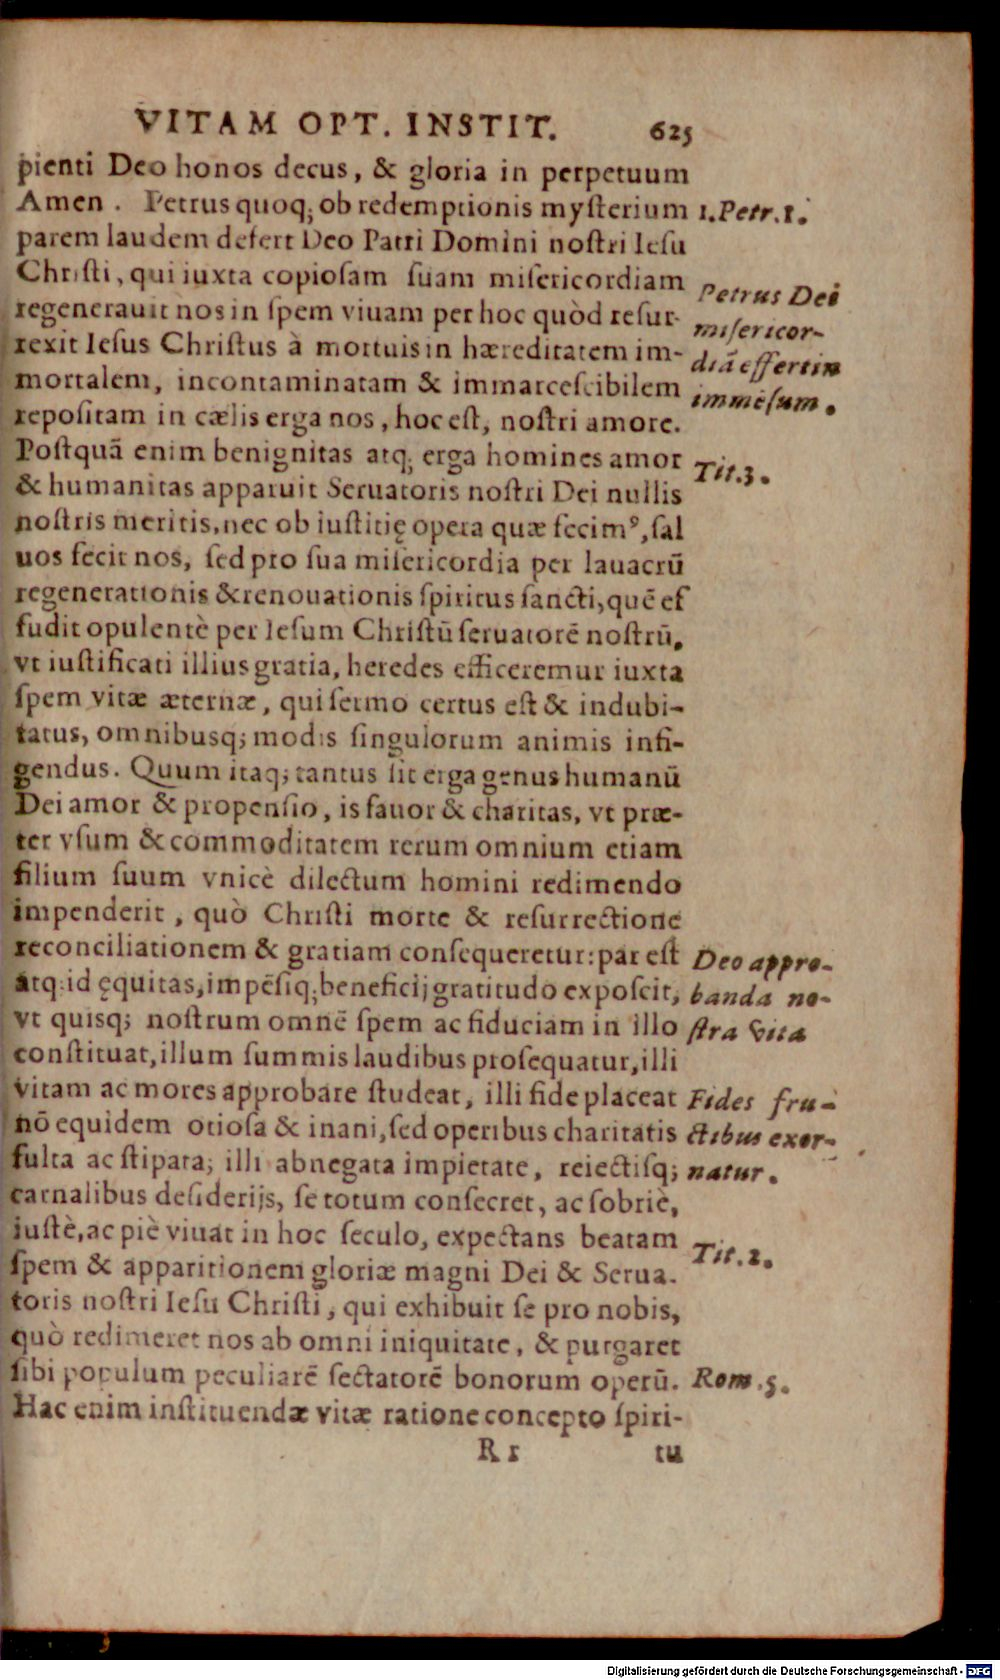 VITAM OPT. INSTIT. 625
pienti Deo honos decus, & gloria in perpetuum
Amen . Petrus quoq; ob redemptionis myſterium
1.Petr.1.
parem laudem defert Deo Patri Domini noſtri Ieſu
Chriſti, qui iuxta copioſam ſuam miſericordiam
Petrus Dei
regenerauit nos in ſpem viuam per hoc quòd reſur-
miſericor-
rexit Ieſus Chriſtus à mortuis in hæreditatem im-
diã effert in
mortalem, incontaminatam & immarceſcibilem
immẽſum.
repoſitam in cælis erga nos, hoc eſt, noſtri amore.
Poſtquã enim benignitas atq; erga homines amor
Tit.3.
& humanitas apparuit Seruatoris noſtri Dei nullis
noſtris meritis, nec ob iuſtitię opera quæ fecimꝰ, ſal
uos fecit nos, ſed pro ſua miſericordia per lauacrũ
regenerationis & renouationis ſpiritus ſancti, quẽ ef
fudit opulentè per Ieſum Chriſtũ ſeruatorẽ noſtrũ,
vt iuſtificati illius gratia, heredes efficeremur iuxta
ſpem vitæ æternæ, qui ſermo certus eſt & indubi-
tatus, omnibusq; modis ſingulorum animis infi-
gendus. Quum itaq; tantus ſit erga genus humanũ
Dei amor & propenſio, is fauor & charitas, vt præ-
ter vſum & commoditatem rerum omnium etiam
filium ſuum vnicè dilectum homini redimendo
impenderit, quò Chriſti morte & reſurrectione
reconciliationem & gratiam conſequeretur: par eſt
Deo appro-
atq; id ęquitas, impẽſiq; beneficij gratitudo expoſcit,
banda no-
vt quisq; noſtrum omnẽ ſpem ac fiduciam in illo
ſtra vita
conſtituat, illum ſummis laudibus proſequatur, illi
vitam ac mores approbare ſtudeat, illi fide placeat
Fides fru-
nõ equidem otioſa & inani, ſed operibus charitatis
ctibus exor-
fulta ac ſtipata; illi abnegata impietate, reiectisq;
natur.
carnalibus deſiderijs, ſe totum conſecret, ac ſobriè,
iuſtè, ac piè viuat in hoc ſeculo, expectans beatam
Tit.2.
ſpem & apparitionem gloriæ magni Dei & Serua-
toris noſtri Ieſu Chriſti, qui exhibuit ſe pro nobis,
quò redimeret nos ab omni iniquitate, & purgaret
ſibi populum peculiarẽ ſectatorẽ bonorum operũ.
Rom.5.
Hac enim inſtituendæ vitæ ratione concepto ſpiri-
R r tu
Digitalisierung gefördert durch die Deutsche Forschungsgemeinschaft - DFG